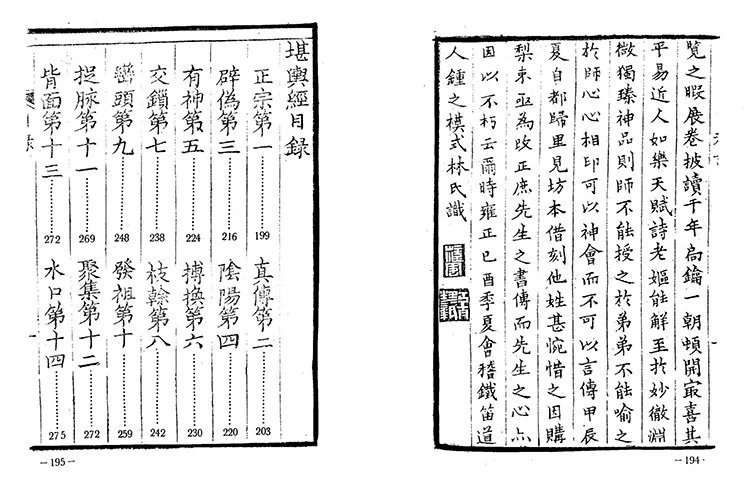 覽之暇展卷披讀千年扃鑰一朝頓開冣喜其
平易近人如樂天賦詩老嫗能解至於妙徹淵
微獨臻神品則師不能授之於弟弟不能喻之
於師心心相印可以神會而不可以言傳甲辰
夏自都歸里見坊本借刻他姓甚惋惜之因購
梨棗亟為改正庶先生之書傳而先生之心亦
因以不朽云爾時雍正己酉季夏會稽鐵笛道
人鍾之模式林氏識
－194－
堪輿經目録
正宗第一………199 真傳第二………203
辟偽第三………216 陰陽第四………220
有神第五………224 摶換第六………230
交鎖第七………238 枝幹第八………242
巒頭第九………248 發祖第十………259
捉脉第十一………269 聚集第十二………272
背面第十三………272 水口第十四………275
－195－